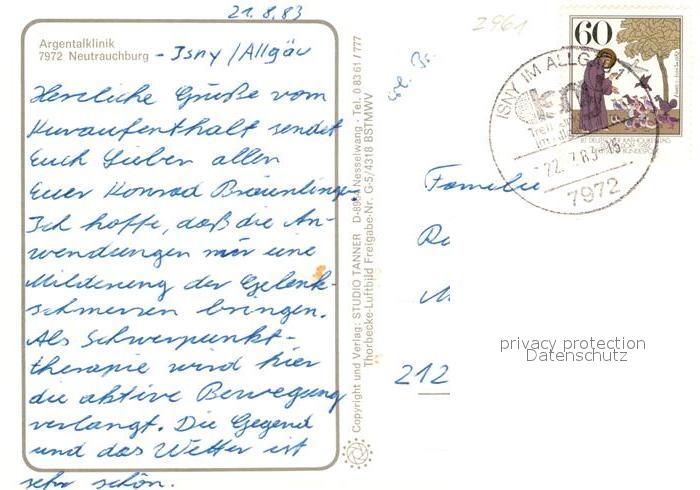 21.8.83
Argentalklinik
7972 Neutrauchburg - Isny / Allgäu
Herzliche Grüße vom
Kuraufenthalt sendet
Euch Lieben allen
Euer Konrad Bräunlinger.
Ich hoffe, daß die An-
wendungen mir eine
Milderung der Gelenk-
schmerzen bringen.
Als Schwerpunkt-
therapie wird hier
die aktive Bewegung
verlangt. Die Gegend
und das Wetter ist
sehr schön.
Copyright und Verlag: STUDIO TANNER D-8964 Nesselwang - Tel. 0 83 61 / 777
Thorbecke-Luftbild Freigabe-Nr. G-5/4318 BSTMWV
2961
60
ISNY IM ALLGÄU 1
22.7.83-15
7972
Familie
212
privacy protection
Datenschutz